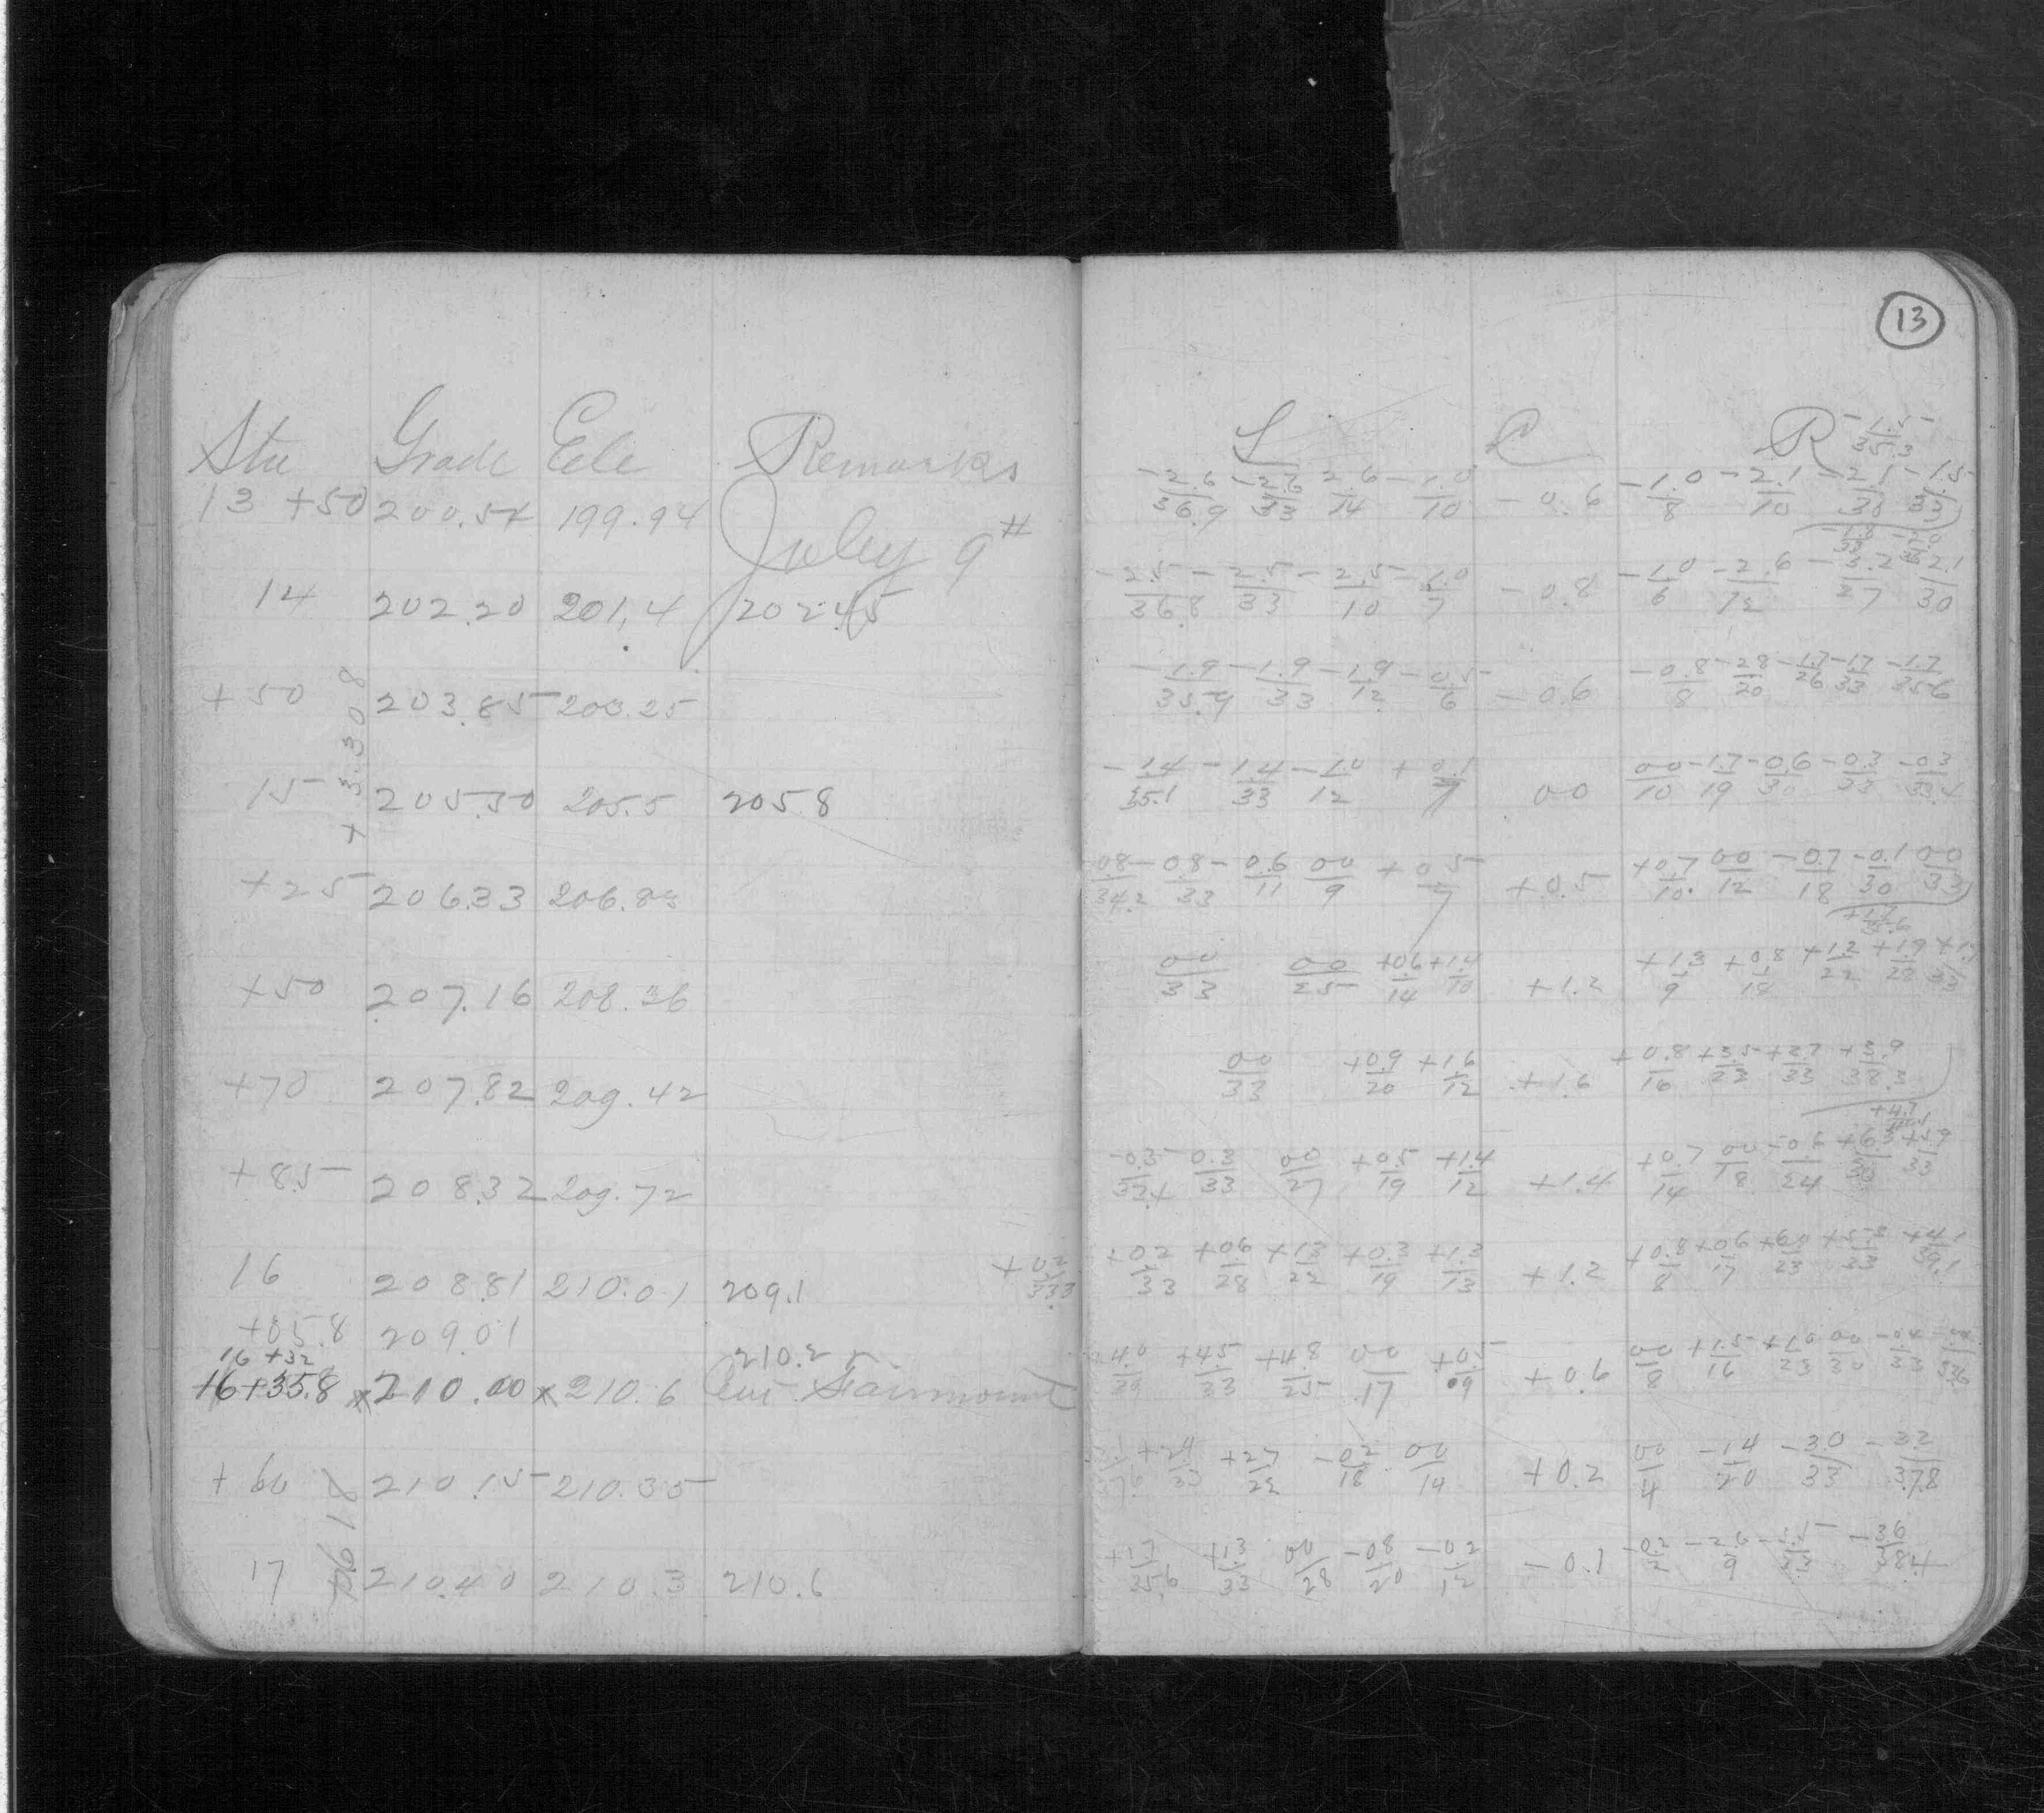 13
Sta Grade Ele Remarks
13 +50 200.54 199.94 July 9th
14 202.20 201.4 202.45
+50 203.85 203.25
+3.308
15 205.50 205.5 205.8
+25 206.33 206.83
+50 207.16 208.36
+70 207.82 209.42
+85 208.32 209.72
16 208.81 210.01 209.1
+05.8 209.01
16 +32 210.2
16+35.8 x 210.00 x 210.6 Fairmount
+60 210.15 210.35
17 210.40 210.3 210.6
L C R -1.5/35.3
-2.6/36.9 -2.6/33 2.6/14 -1.0/10 -0.6 -1.0/8 -2.1/10 -2.1/30 -1.5/33
-2.5/36.8 -2.5/33 -2.5/10 -1.0/7 -0.8 -1.0/6 -2.6/12 -3.2/27 -2.1/30
-1.9/35.9 -1.9/33 -1.9/12 -0.5/6 -0.6 -0.8/8 -2.8/20 -1.7/26 -1.7/33 -1.7/35.6
-1.4/35.1 -1.4/33 -1.0/12 +0.1/7 00 00/10 -1.7/19 -0.6/30 -0.3/33 -0.3/33.4
0.8/34.2 -0.8/33 -0.6/11 00/9 +0.5/7 +0.5 +0.7/10 00/12 -0.7/18 -0.1/30 00/33
00/33 00/25 +0.6/14 +1.4/10 +1.2 +1.3/9 +0.8/18 +1.2/22 +1.9/28
00/33 +0.9/20 +1.6/12 +1.6 +0.8/16 +3.5/23 +3.7/33 +3.9/38.3
-0.3/33.4 -0.3/33 00/27 +0.5/19 +1.4/12 +1.4 +0.7/14 00/18 -0.6/24 +5.9/33
+0.2/33.3 +0.2/33 +0.6/28 +1.3/22 +0.3/19 +1.3/13 +1.2 +0.8/8 +0.6/17 +6.0/23 +5.8/33 +4.1/39.1
+4.0/39 +4.5/33 +4.8/25 00/17 +0.5/09 +0.6 00/8 +1.5/16 +1.0/23 00/30 -0.4/33
+2.4/33 +2.7/22 -0.2/18 00/14 +0.2 00/4 -1.4/20 -3.0/33 -3.2/37.8
+1.7/35.6 +1.3/33 00/28 -0.8/20 -0.2/12 -0.1 -0.2/2 -2.6/9 -3.6/38.4